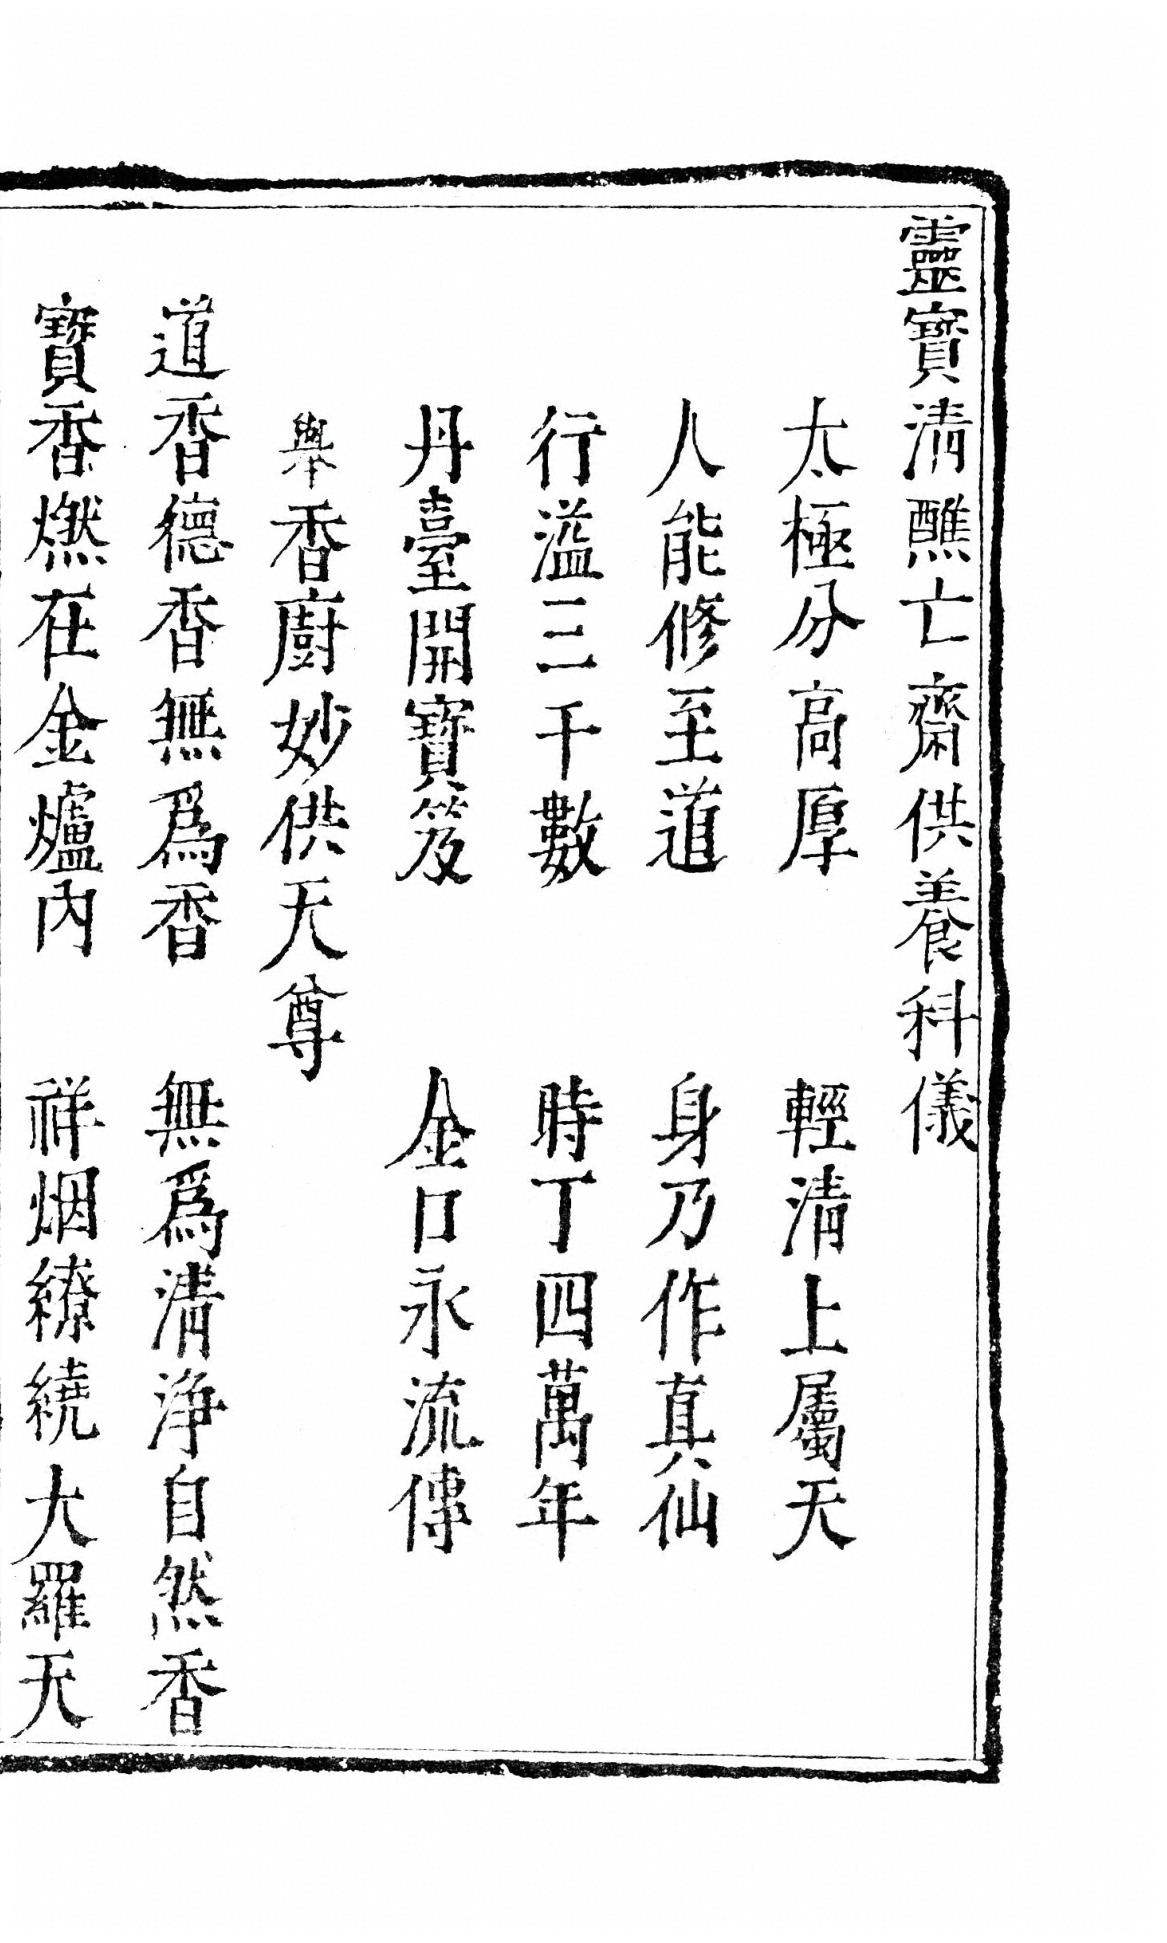 靈寶清醮亡齋供養科儀
太極分高厚　輕清上屬天
人能修至道　身乃作真仙
行溢三千數　時丁四萬年
丹臺開寶笈　金口永流傳
舉香廚妙供天尊
道香德香無爲香　無爲清淨自然香
寶香燃在金爐內　祥烟繚繞大羅天